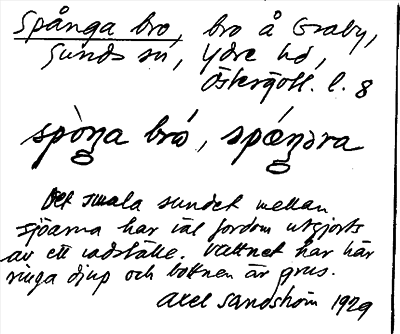 Spånga bro, bro å Graby,
Sunds sn, Ydre hd,
Östergötl. l. 8
spòŋa bró, spǽŋəra
Det smala sundet mellan
sjöarna har väl fordom utgjorts
av ett vadställe. Vattnet har här
ringa djup och bottnen är grus.
Axel Sandström 1929